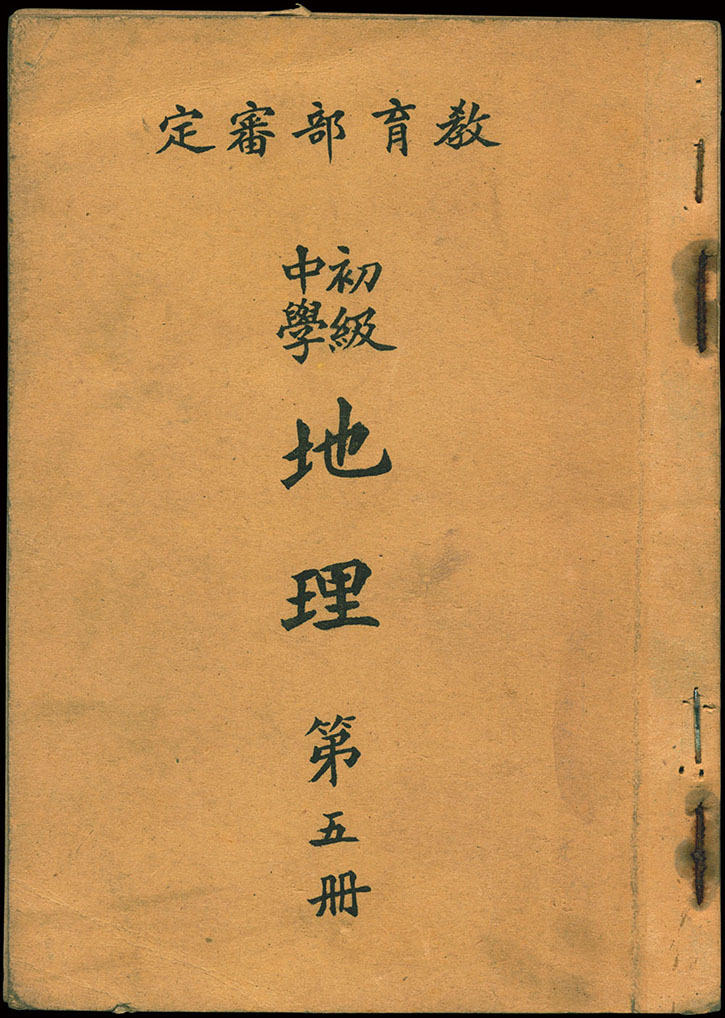 教育部審定
初級
中學
地理
第五冊